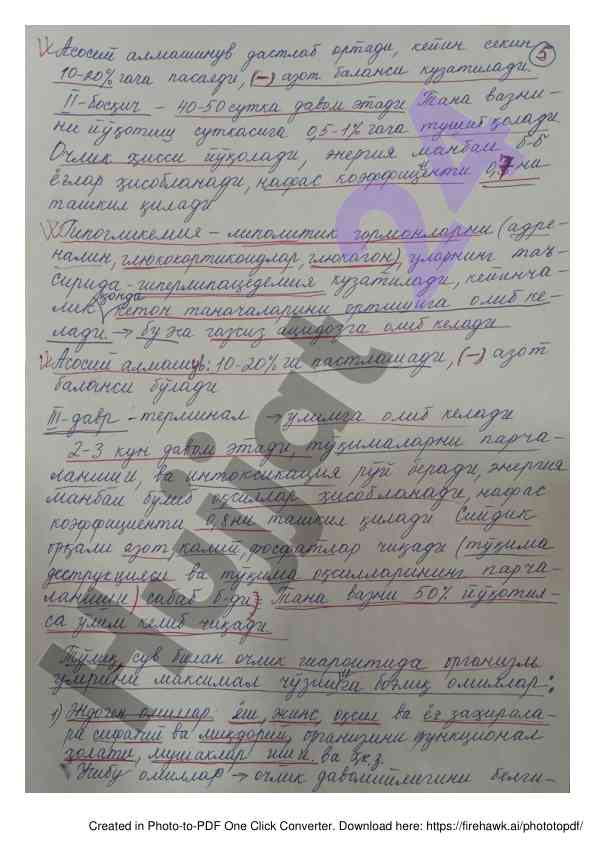 Асосий алмашинув дастлаб ортади, кейин секин 5
10-20% гача пасаяди, (–) азот баланси кузатилади.
II-босқич – 40-50 сутка давом этади Тана вазни-
ни йўқотиш суткасига 0,5-1% гача тушиб қолади
Очлик ҳисси йўқолади, энергия манбаи б-б
ёғлар ҳисобланади, нафас коэффиценти 0,7 ни
ташкил қилади
Гипогликемия – липолитик гормонларни (адре-
налин, глюкокортикоидлар, глюкагон), уларнинг таъ-
сирида - гиперлипацедемия кузатилади, кейинча-
лик қонда кетон таначаларини ортишига олиб ке-
лади. → бу эса газсиз ацидозга олиб келади
Асосий алмашув: 10-20% ги пастланади, (–) азот
баланси бўлади
III-давр - терминал → ўлимга олиб келади
2-3 кун давом этади, тўқималарни парча-
ланиши, ва интоксикация рўй беради, энергия
манбаи бўлиб оқсиллар ҳисобланади, нафас
коэффициенти 0,8 ни ташкил қилади Сийдик
орқали азот, калий, фосфатлар чиқади (тўқима
деструкцияси ва тўқима оқсилларининг парча-
ланиши) сабаб б-ди; Тана вазни 50% йўқотил-
са ўлим келиб чиқади.
Тўлиқ, сув билан очлик шароитида организм
умрини максимал чўзилиши боғлиқ омиллар:
1) Эндоген омиллар: ёш, жинс, оқсил ва ёғ захирала-
ра сифатий ва миқдорий, организмни функционал
ҳолати, мушаклар иши. ва ҳкз.
Ушбу омиллар → очлик давомийлигини белги-
Hujjat 24
Created in Photo-to-PDF One Click Converter. Download here: https://firehawk.ai/phototopdf/